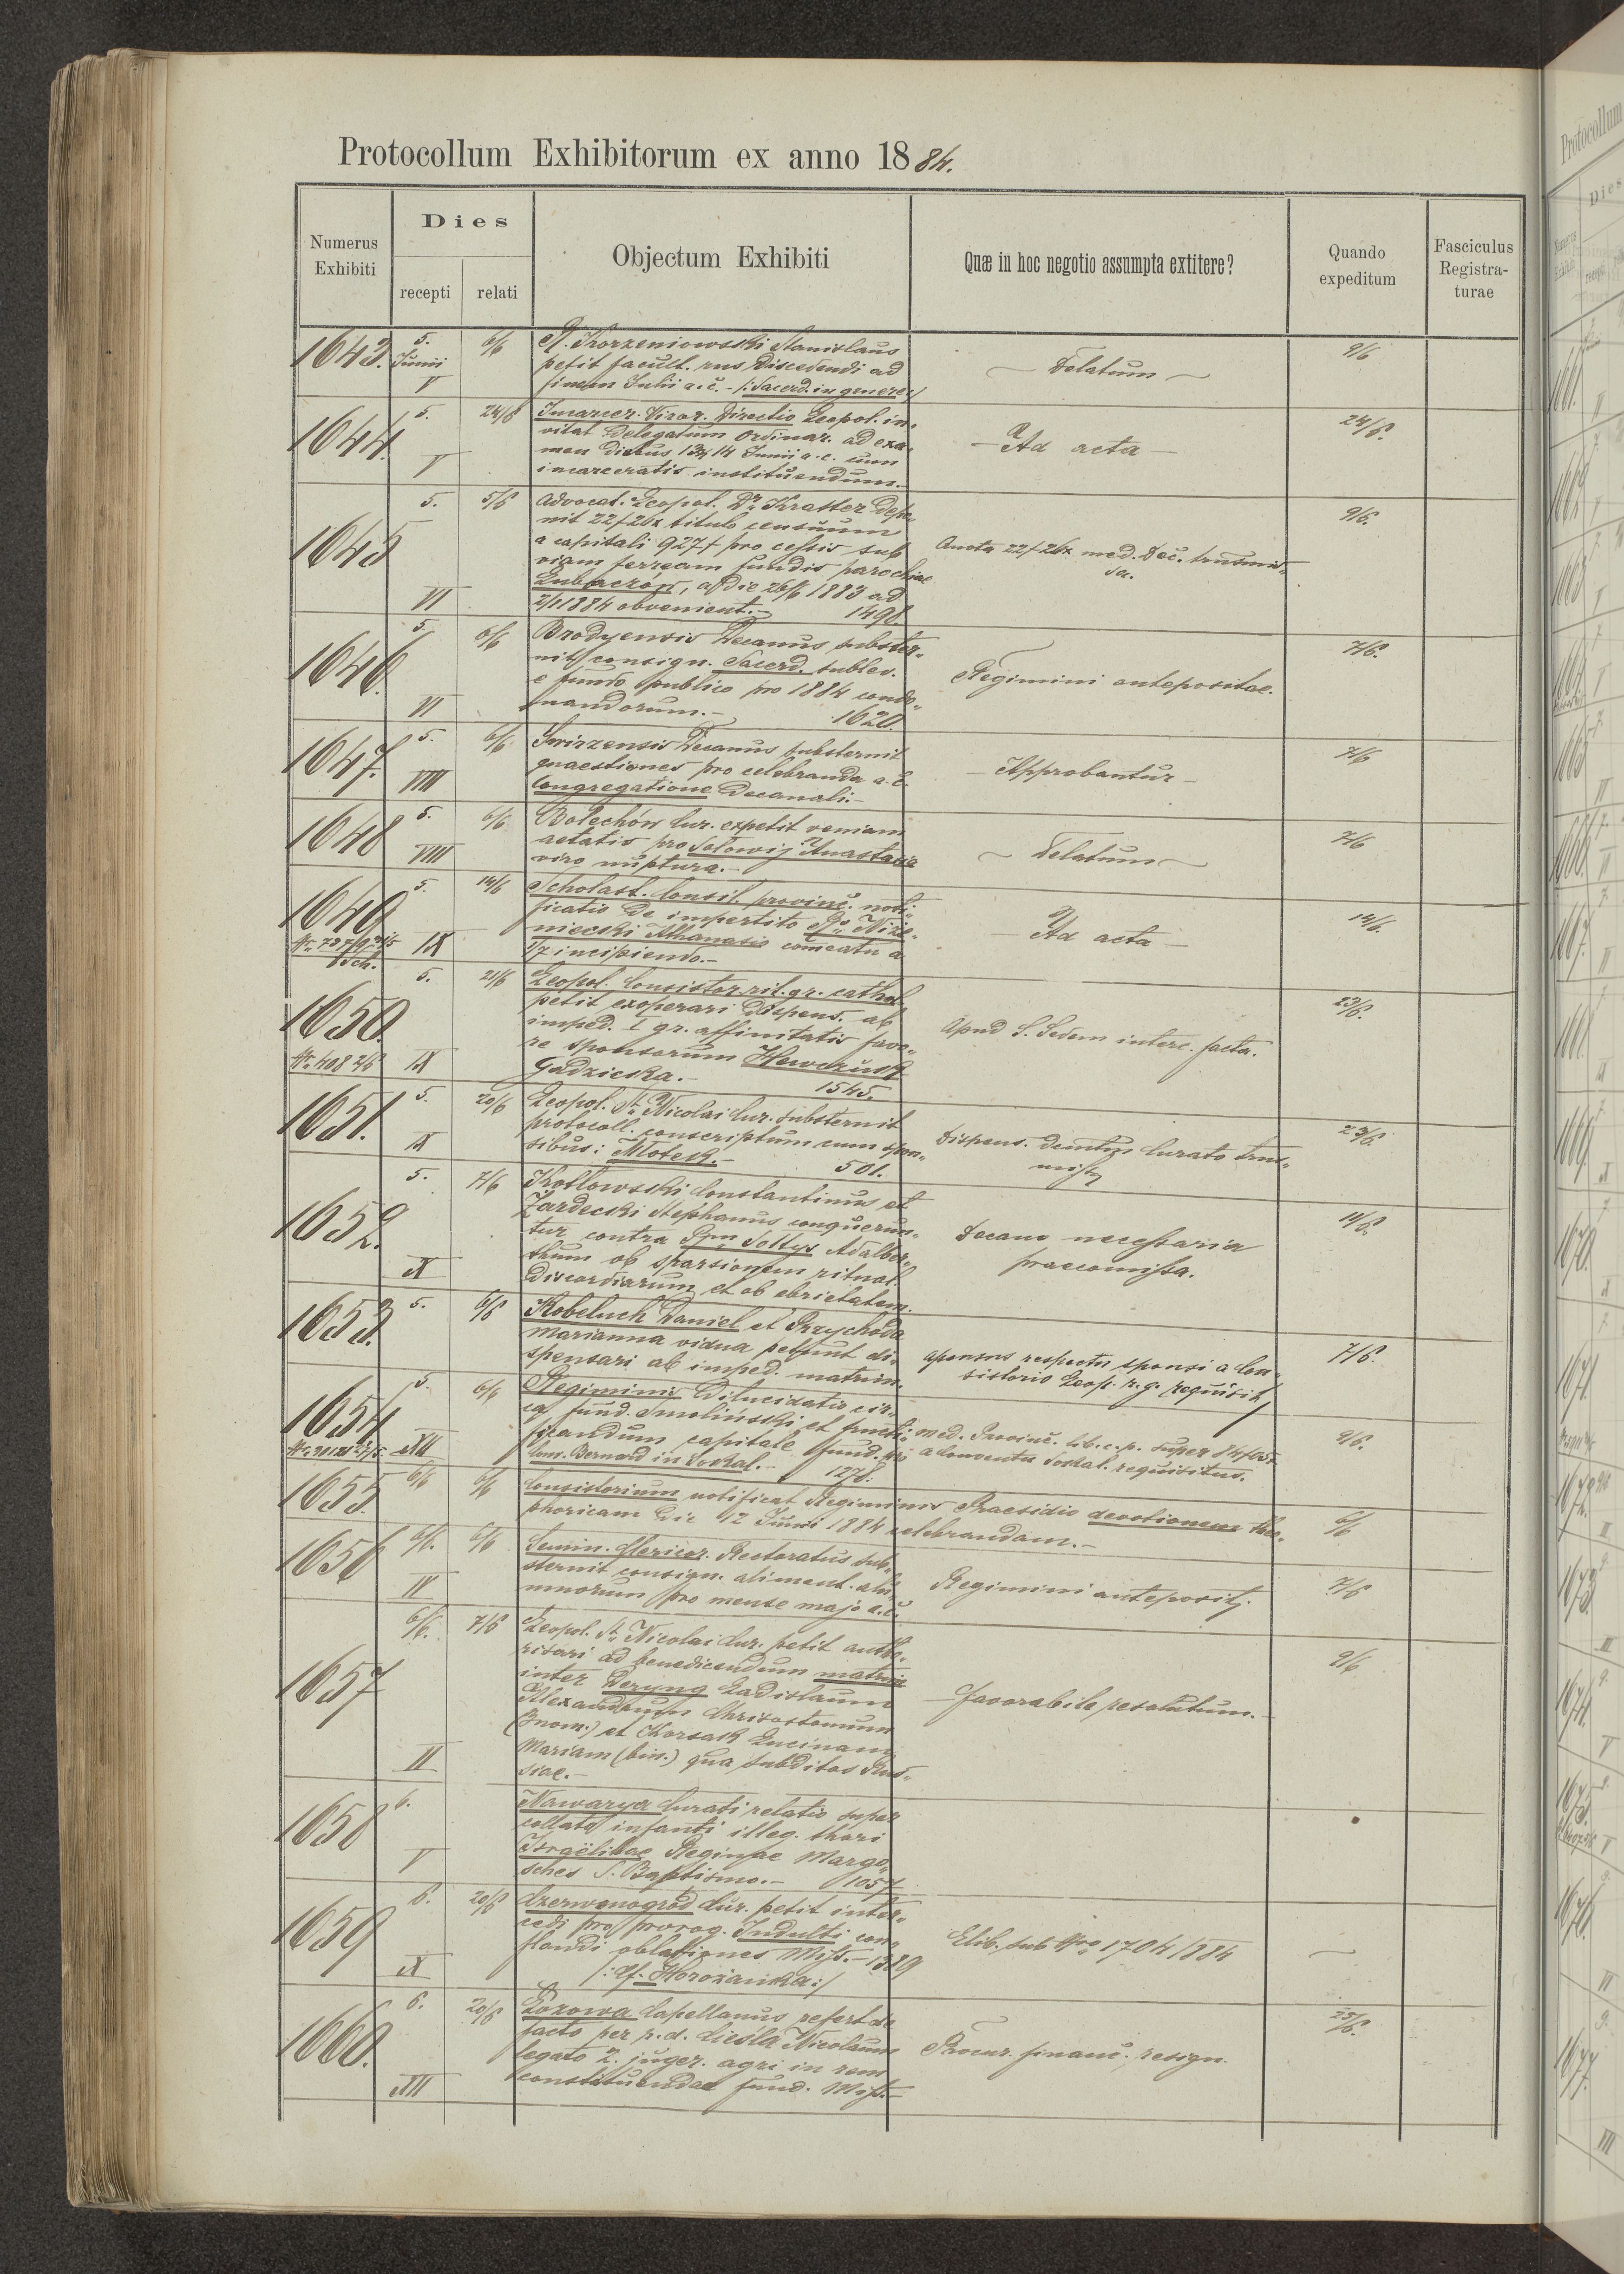 Protocollum Exhibitorum ex anno 1884.
Numerus Exhibiti
Dies
recepti
relati
Objectum Exhibiti
Quæ in hoc negotio assumpta extitere?
Quando expeditum
Fasciculus Registra-turae
1643.
5. Junii
V
6/6
R. Korzeniowski Stanislaus
petit facult. discedendi ad
finem Julii a. c. - /: Sacerd. in genere :/
Delatum
9/6
1644.
5.
V
24/6
Incarcer. Viror. Directio Leopol. in-
vitat Delegatum Ordinar. ad exa-
men diebus 13 14 Junii a. c. cum
incarceratis instituendum.
Ad acta
24/6.
1645
5.
VI
5/6
Advocat. Leopol. Dr. Kratter depo-
nit 22 f 26x titulo censuum
a capitali 927 f pro cessis sub
viam ferream fundis parochiae
Lubaczów, a die 26/6 1883 ad
2/1 1884 obvenient. 1498.
Quota 22 f 26x med. Dec. transmis-
sa.
9/6.
1646.
5.
VI
6/6
Brodyensis Decanus subster-
nit consign. Sacerd. sublev.
e fundo publico pro 1884 condo-
nandorum. 1620.
Regimini antepositae.
7/6.
1647.
5.
VIII
6/6
Swirzensis Decanus substernit
quaestiones pro celebranda a. c.
Congregatione Decanali.
Approbantur
7/6
1648
5.
VIII
6/6
Bolechów Cur. expetit veniam
aetatis pro Sołowij Anastasia
viro nuptura.
Delatum
7/6
1649
5.
IX
14/6
Scholast. Consil. provinc. noti-
ficatio de impertito Rdo Nize-
niecki Athanasio comeatu a
1/7 incipiendo.
Ad acta
14/6.
1650.
Nr. 408 2/6
5.
IX
21/6
Leopol. Consistor. rit. gr. cathol.
petit exoperari dispens. ab
imped. I gr. affinitatis favo-
re sponsorum Hawczuk
Gadzicka. 1545.
Apud S. Sedem interc. facta.
23/6.
1651.
5.
IX
20/6
Leopol. St. Nicolai Cur. substernit
protocoll. conscriptum cum spon-
sibus: Młotek. 501.
Dispens. Curato trans-
missa
23/6.
1652.
5.
X
7/6
Kotłowski Constantinus et
Zardecki Stephanus conquerun-
tur contra Rdum Sołtys Adalber-
thum ob sparsionem ritual.
discordiarum et ob ebrietatem.
Decano necessaria
praecomissa.
14/6.
1653.
5.
6/6
Kobeluch Daniel et Przychoda
Marianna vidua petunt di-
spensari ab imped. matrim.
respectu sponsi a Con-
sistorio Leop. r. g. requisit
7/6.
1654
5.
XII
6/6
Regiminis dilucidatio cir-
ca fund. Smoliński et fructi-
ficandum capitale fund. pro
Con. Bernard in Sokal. 1278.
med. Provinc. lib. c. p. super 84 f 05x
a Conventu Sokal. requisitus.
9/6.
1655.
6/6
6/6
Consistorium notificat Regiminis Praesidio devotionem theo-
phoricam die 12 Junii 1884 celebrandam.
6/6
1656
6/6.
IV
6/6
Semin. Clericor. Rectoratus sub-
sternit consign. aliment. alu-
mnorum pro mense majo a. c.
Regimini anteposit.
7/6
1657
6/6.
II
7/6
Leopol. St. Nicolai Cur. petit autho-
risari ad benedicendum matrim
inter Deryng Ladislaum
Alexandrum Chrisostomum
(3 nom.) et Korsak Lucinam
Mariam (bin.) qua subditos Rus-
siae.
Favorabile resolutum.
9/6
1658
6.
V
Nawarya Curati relatio super
collato infanti illeg. thori
Israëlitae Reginae Margo-
sches S. Baptismo. 1057
1659
6.
X
20/6
Czerwonogród Cur. petit inter-
cedi pro prorog. Indulti con-
flandi oblationes Miss. 1389
/: Horożanka :/
Elib. sub Nro 1704/884
1660.
6.
XII
20/6
Łozowa Capellanus refert de
facto per p. d. Cieśla Nicolaum
legato 2. juger. agri in rem
constituendae fund. Miss.
Procur. financ. resign.
23/6.